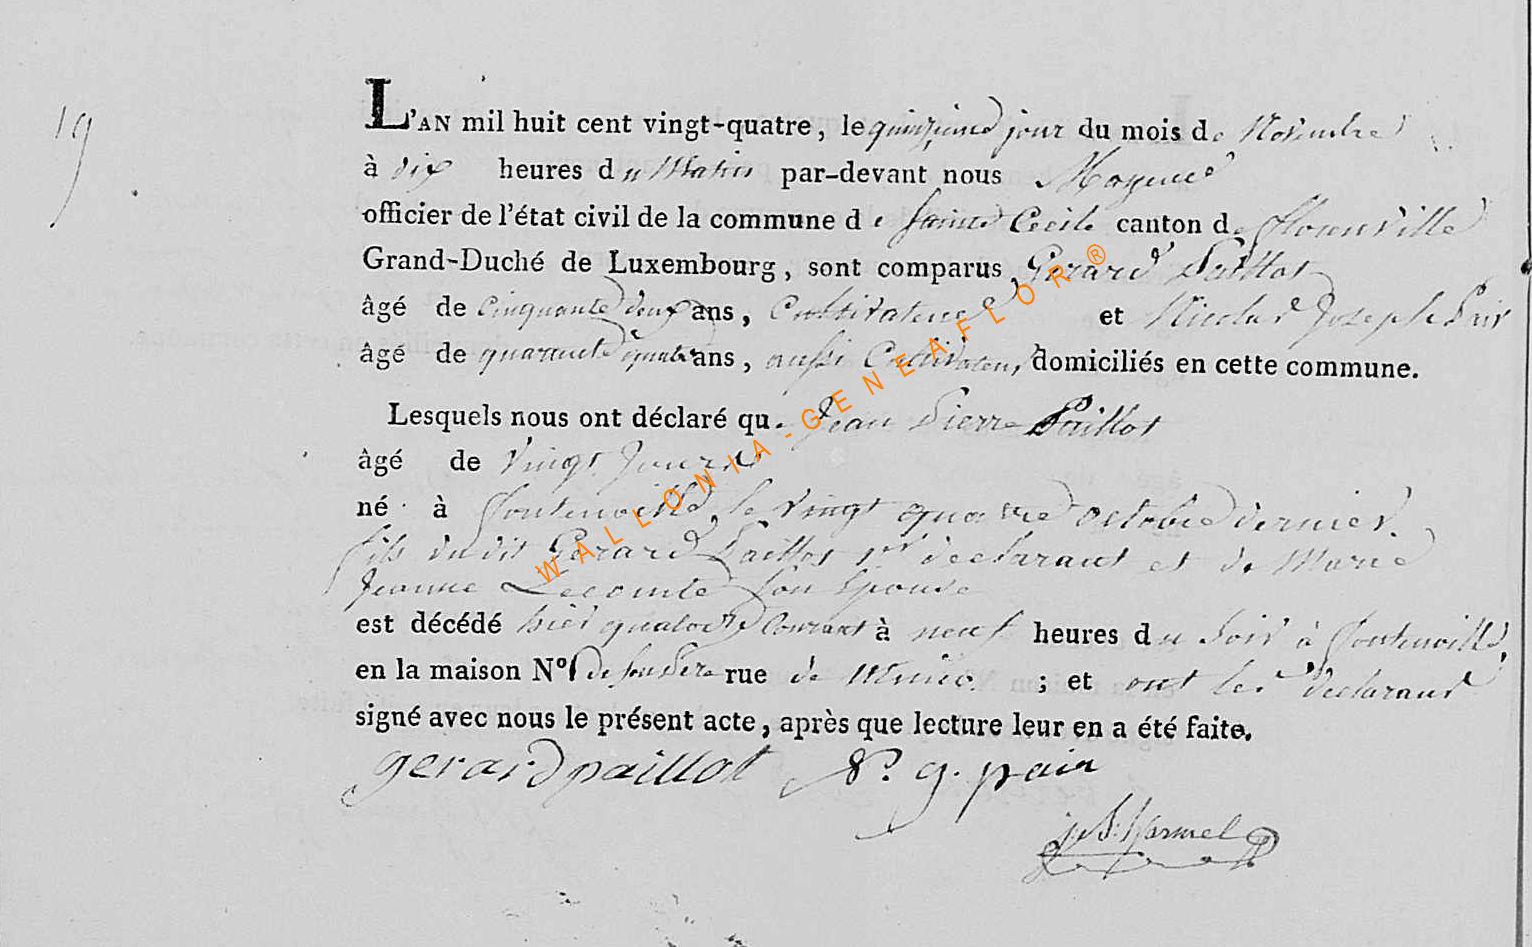 19
L'AN mil huit cent vingt-quatre, le quinzieme jour du mois de Novembre
à dix heures du Matin par-devant nous Mayeur
officier de l'état civil de la commune de Sainte Cecile canton de florenville
Grand-Duché de Luxembourg, sont comparus Gerard Paillot
âgé de Cinquante deux ans, Cultivateur et Nicolas Joseph Pair
âgé de quarante quatre ans, aussi Cultivateur, domiciliés en cette commune.
Lesquels nous ont déclaré que Jean Pierre Paillot
âgé de Vingt Jours
né à fontenoille, le vingt quatre octobre dernier.
fils du dit Gerard Paillot 1er declarant et de Marie
Jeanne Lecomte son Epouse
est décédé hier quatorze Courant à neuf heures du Soir à fontenoille,
en la maison No de son Pere rue de ; et ont les declarants
signé avec nous le présent acte, après que lecture leur en a été faite.
gerard paillot N. g. pair
j. B. Harmel
WALLONIA-GENEAFLOR®